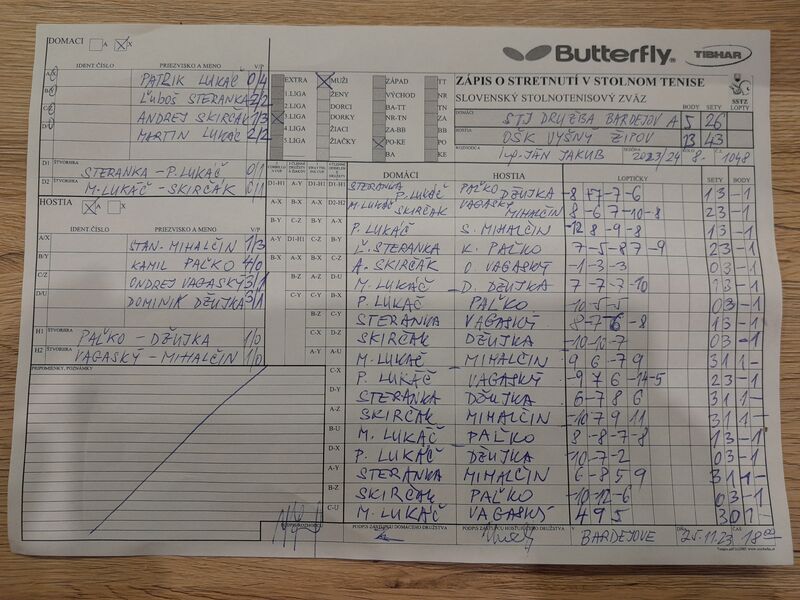 DOMACI A X
IDENT. ČÍSLO PRIEZVISKO A MENO V/P
A/X PATRIK LUKÁČ 0/4
B/Y ĽUBOŠ STERANKA 2/2
C/Z ANDREJ SKIRČÁK 1/3
D/U MARTIN LUKÁČ 2/2
D1 ŠTVORHRA STERANKA - P. LUKÁČ 0/1
D2 M. LUKÁČ - SKIRČÁK 0/1
HOSTIA A X
IDENT. ČÍSLO PRIEZVISKO A MENO V/P
A/X STAN. MIHALČIN 1/3
B/Y KAMIL PAĽKO 4/0
C/Z ONDREJ VAGASKÝ 3/1
D/U DOMINIK DŽUJKA 3/1
H1 ŠTVORHRA PAĽKO - DŽUJKA 1/0
H2 ŠTVORHRA VAGASKÝ - MIHALČIN 1/0
PRIPOMIENKY, POZNÁMKY
Butterfly TIBHAR
ZÁPIS O STRETNUTÍ V STOLNOM TENISE
SLOVENSKÝ STOLNOTENISOVÝ ZVÄZ
SSTZ
BODY SETY LOPTY
DOMÁCI STJ DRUŽBA BARDEJOV A 5 26
HOSTIA OŠK VYŠNÝ ŽIPOV 13 43
ROZHODCA Ing. JÁN JAKUB SEZÓNA 2023/24 8. 1048
EXTRA MUŽI ZÁPAD TT
1.LIGA ŽENY VÝCHOD NR
2.LIGA DORCI BA-TT TN
3.LIGA DORKY NR-TN ZA
4.LIGA ŽIACI ZA-BB BB
5.LIGA ŽIAČKY PO-KE PO
BA KE
DOMÁCI HOSTIA LOPTIČKY SETY BODY
STERANKA P. LUKÁČ PAĽKO DŽUJKA -8 +7 -7 -6 13 -1
M. LUKÁČ SKIRČÁK VAGASKÝ MIHALČIN 8 -6 7 -10 -8 23 -1
P. LUKÁČ S. MIHALČIN -12 8 -9 -8 13 -1
Ľ. STERANKA K. PAĽKO 7 -5 -8 7 -9 23 -1
A. SKIRČÁK O. VAGASKÝ -1 -3 -3 03 -1
M. LUKÁČ D. DŽUJKA
P. LUKÁČ PAĽKO -10 -5 -5 03 -1
STERANKA VAGASKÝ 8 -7 -6 -8 13 -1
SKIRČÁK DŽUJKA -10 -10 -7 03 -1
M. LUKÁČ MIHALČIN 9 6 -7 9 31 1 -
P. LUKÁČ VAGASKÝ -9 7 6 -14 -5 23 -1
STERANKA DŽUJKA 6 -7 8 6 31 1 -
SKIRČÁK MIHALČIN -10 7 9 11 31 1 -
M. LUKÁČ PAĽKO 8 -8 -7 -8 13 -1
P. LUKÁČ DŽUJKA -10 -7 -2 03 -1
STERANKA MIHALČIN 6 -8 5 9 31 1 -
SKIRČÁK PAĽKO -10 -12 -6 03 -1
M. LUKÁČ VAGASKÝ 4 9 5 30 1 -
PODPIS ROZHODCU PODPIS ZÁSTUPCU DOMÁCEHO DRUŽSTVA PODPIS ZÁSTUPCU HOSŤUJÚCEHO DRUŽSTVA V BARDEJOVE DŇA 25.11.23 ČAS 18 00